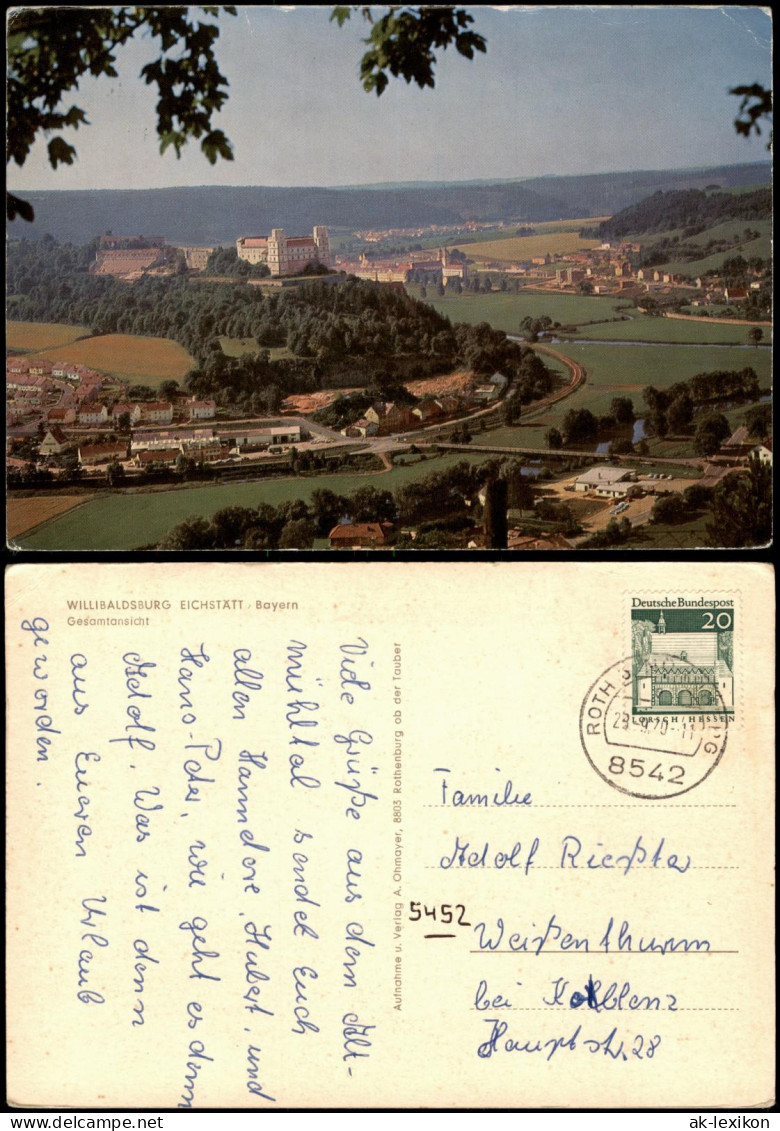 WILLIBALDSBURG EICHSTÄTT / Bayern
Gesamtansicht
Viele Grüße aus dem Alt-
mühltal sendet Euch
allen Hannelore, Hubert, und
Hans-Peter, wie geht es dem
Adolf. Was ist denn
aus Eueren Urlaub
geworden.
Aufnahme u. Verlag A. Ohmayer, 8803 Rothenburg ob der Tauber
Deutsche Bundespost
20
LORSCH / HESSEN
ROTH
29.-9.70-11
8542
Familie
Adolf
5452
Weißenthurm
bei Koblenz
Hauptstr. 28
ak-lexikon